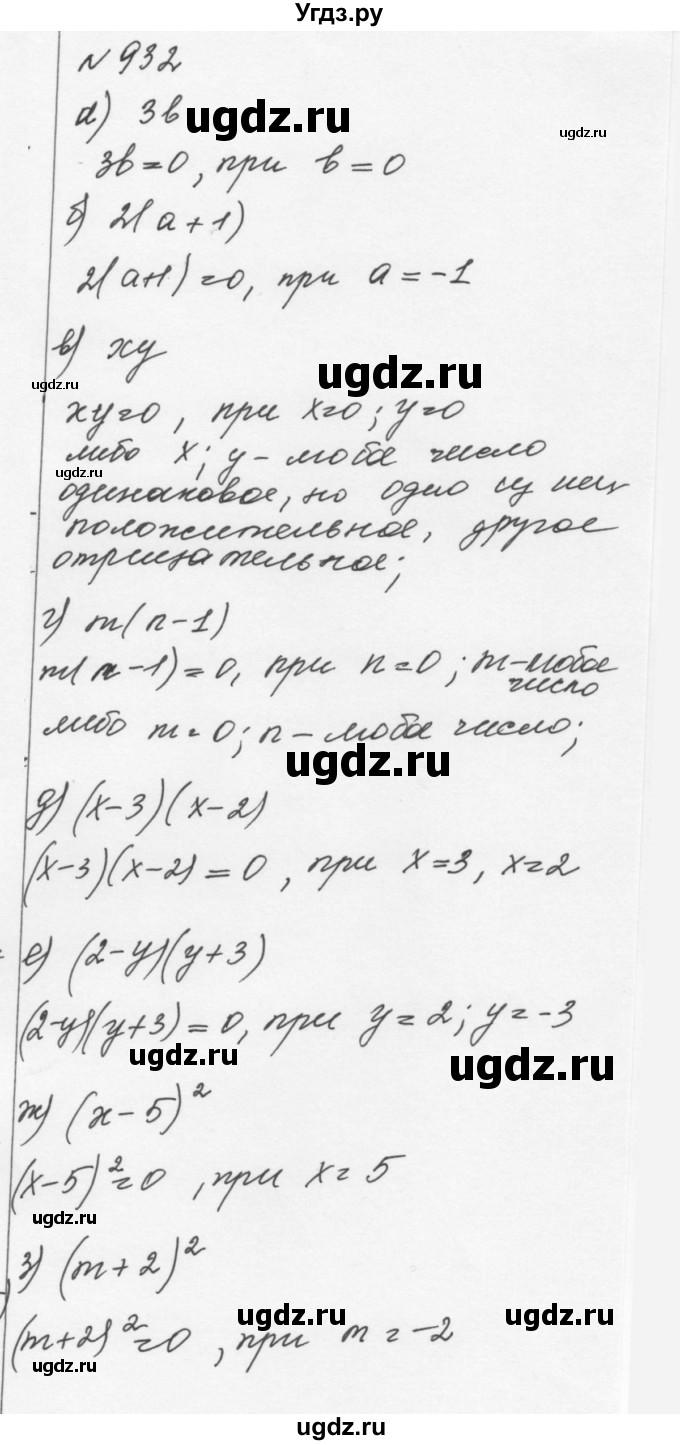 Угдз.ру
№ 932
а) 3b
ugdz.ru
ugdz.ru
3b=0, при b=0
б) 2(a+1)
2(a+1)=0, при a=-1
в) xy
ugdz.ru
ugdz.ru
xy=0, при x=0; y=0
либо x; y - любое число
ugdz.ru
одинаковое, но одно из них
положительное, другое
отрицательное;
г) m(n-1)
m(n-1)=0, при n=0; m-любое
число
либо m=0; n-любое число;
ugdz.ru
д) (x-3)(x-2)
(x-3)(x-2)=0, при x=3, x=2
е) (2-y)(y+3)
(2-y)(y+3)=0, при y=2; y=-3
ugdz.ru
ugdz.ru
ж) (x-5)²
(x-5)²=0, при x=5
ugdz.ru
з) (m+2)²
ugdz.ru
ugdz.ru
(m+2)²=0, при m=-2
ugdz.ru
ugdz.ru